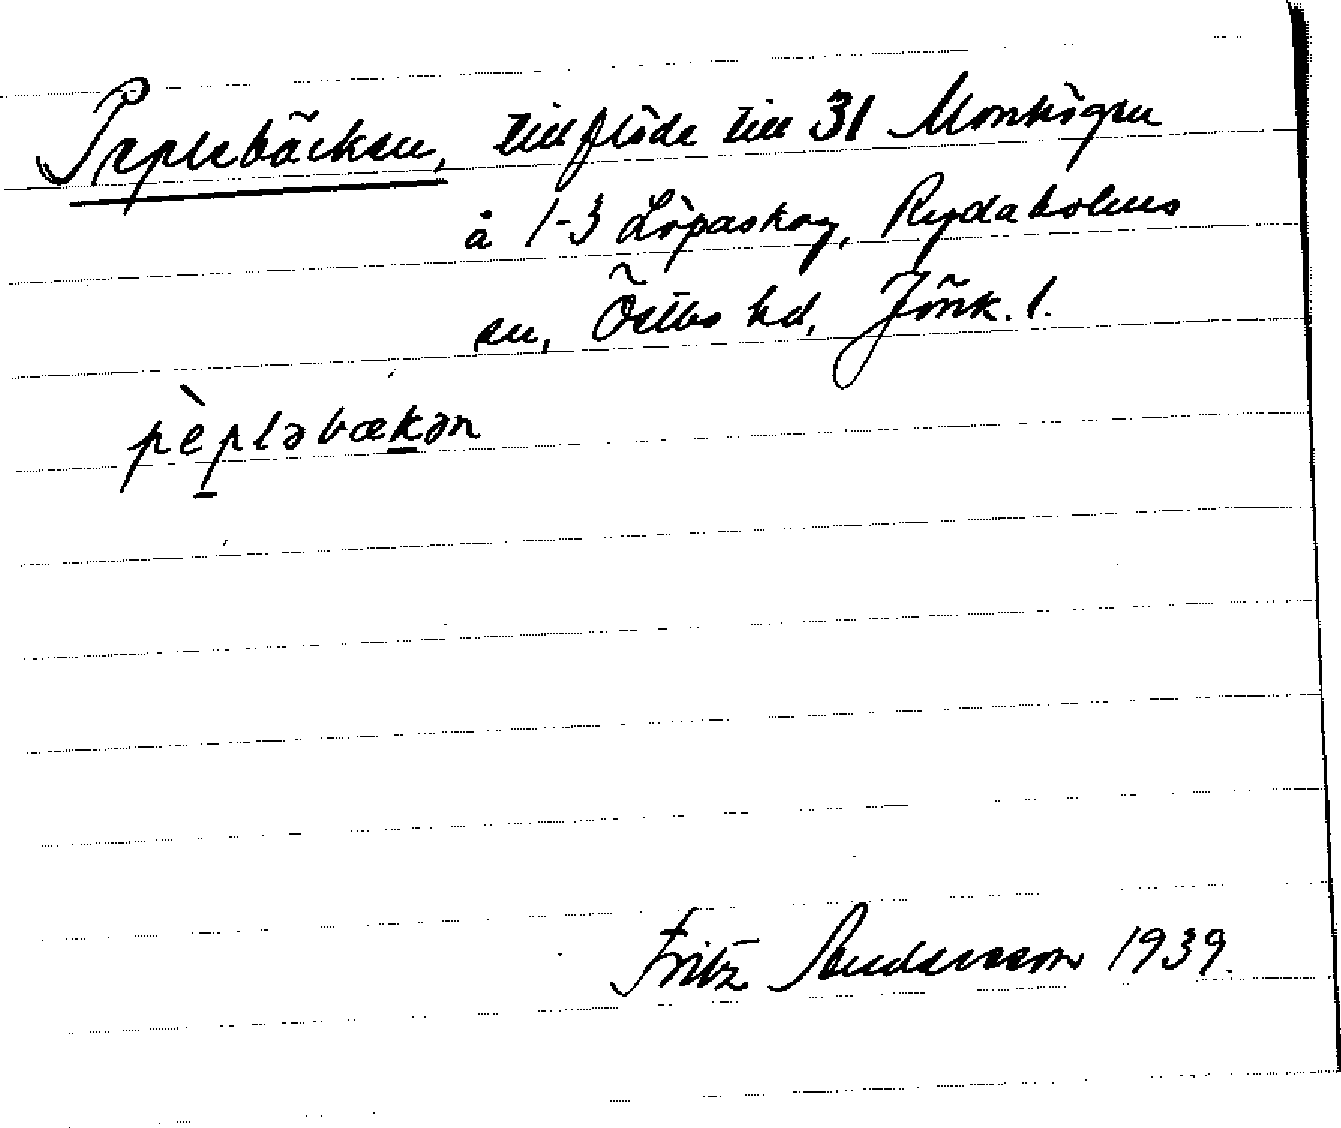 Peplebäcken, tillflöde till 31 Monhögen
å 1-3 Löpaskog, Rydaholms
sn, Östbo hd, Jönk. l.
pèpləbækən
Fritz Andersson 1939.